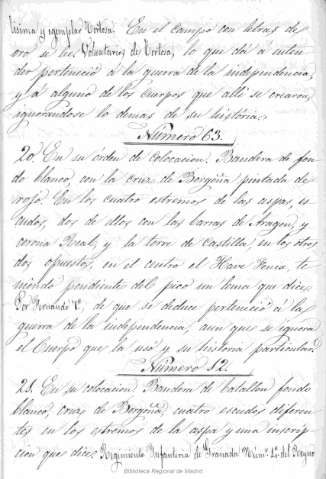 lísima y egemplar Tortosa. En el campo con letras de
oro se lee Voluntarios de Tortosa, lo que da á enten
der perteneció á la guerra de la independencia,
y á alguno de los Cuerpos que allí se crearon,
ignorandose lo demas de su historia.
Número 63.
20. En su órden de colocacion. Bandera de fon
do blanco, con la Cruz de Borgoña pintada de
rojo. En los cuatro estremos de las aspas, es
cudos, dos de ellos con las barras de Aragon, y
corona Real, y la torre de Castilla en los otros
dos opuestos, en el centro el Have Fenix te
niendo pendiente del pico un lema que dice
Por Fernando 7º, de que se deduce perteneció á la
guerra de la independencia, aun que se ignora
el Cuerpo que la usó y su historia particular.
Número 12.
21. En su colocacion Bandera de batallon fondo
blanco, cruz de Borgoña, cuatro escudos diferen
tes en los estremos de la aspa y una inscrip
cion que dice: Regimiento Infantería de Granada Núm.º 1º del Reyno
Biblioteca Regional de Madrid